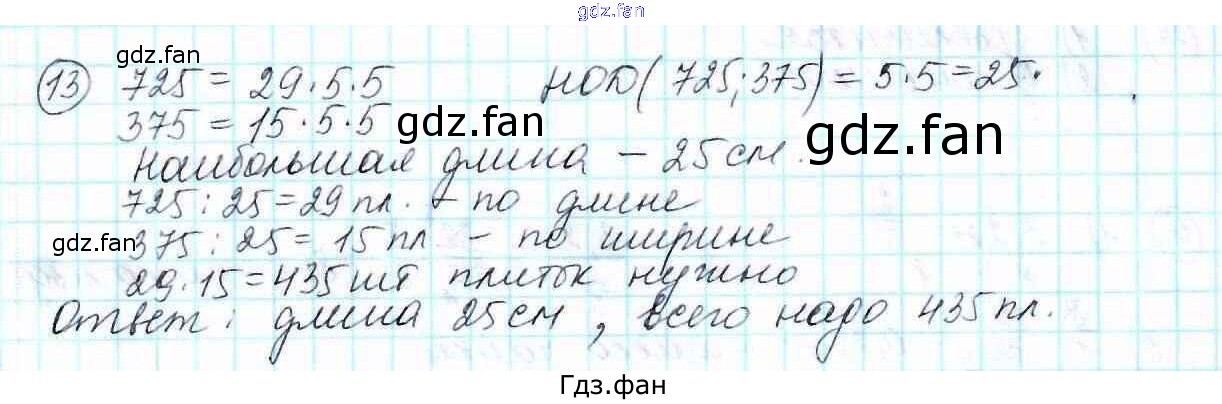 gdz.fan
gdz.fan
13 725 = 29·5·5 НОД(725;375) = 5·5=25.
375 = 15·5·5 gdz.fan
Наибольшая длина – 25 см. gdz.fan
725 : 25 = 29 пл. – по длине
gdz.fan 375 : 25 = 15 пл – по ширине
29·15=435 шт плиток нужно
Ответ: длина 25 см, всего надо 435 пл.
Гдз.фан